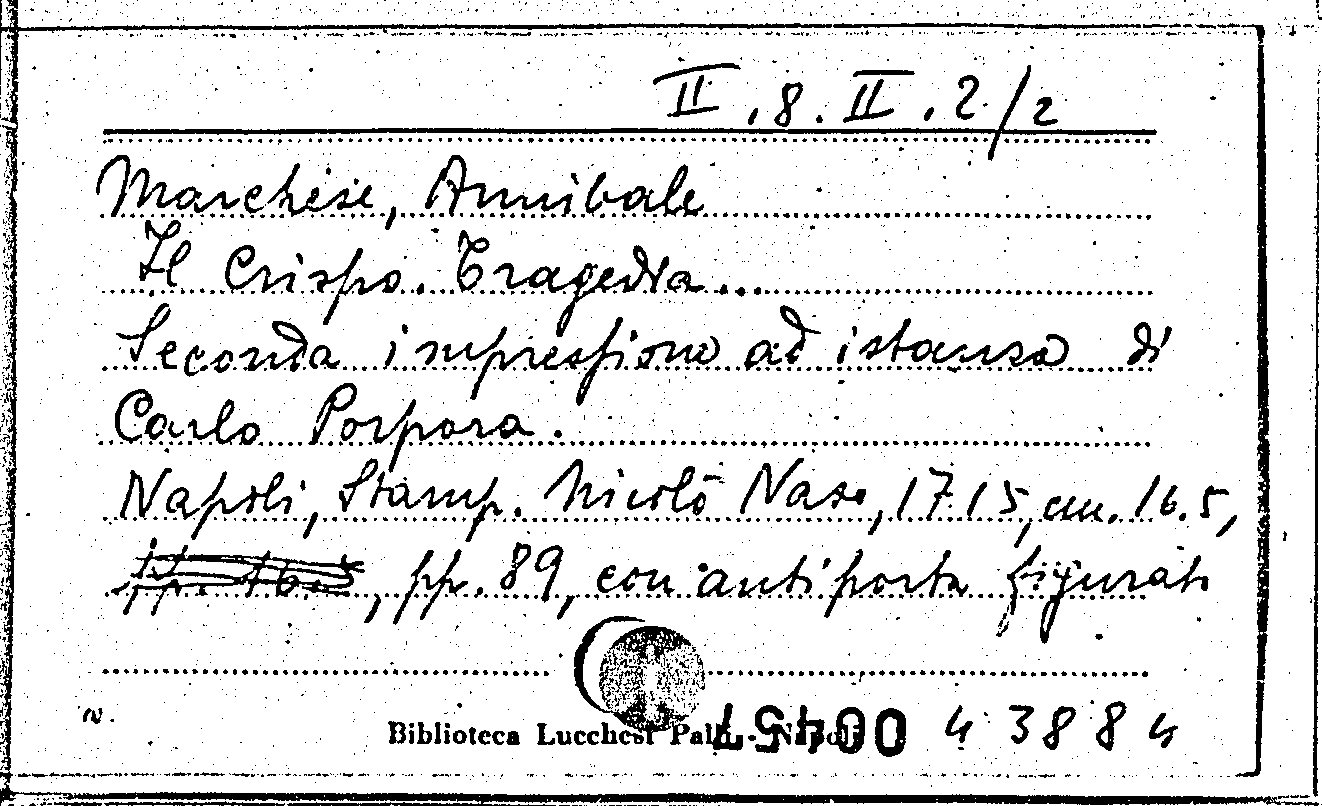 II.8.II.2/2
Marchese, Annibale
Il Crispo. Tragedia...
Seconda impressione ad istanza di
Carlo Porpora.
Napoli, Stamp. Nicolò Naso, 1715, cm. 16.5,
, pp. 89, con antiporta figurata
N.
Biblioteca Lucchesi Palli - Napoli
43884